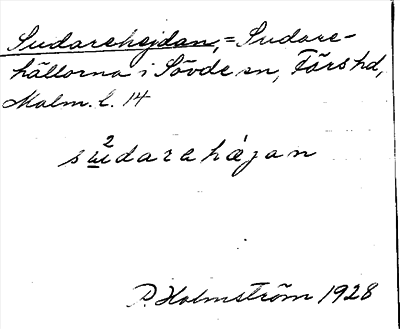 Sudarehejdan, = Sudare-
hällorna i Sövde sn, Färs hd,
Malm. l. 14
su²darehæjan
P. Holmström 1928